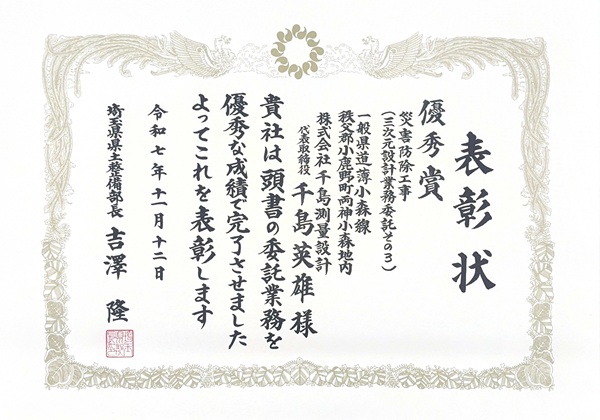 表彰状
優秀賞
災害防除工事
(三次元設計業務委託その3)
一般県道薄小森線
秩父郡小鹿野町両神小森地内
株式会社千島測量設計
代表取締役 千島英雄様
貴社は頭書の委託業務を
優秀な成績で完了させました
よってこれを表彰します
令和七年十一月十二日
埼玉県県土整備部長 吉澤隆